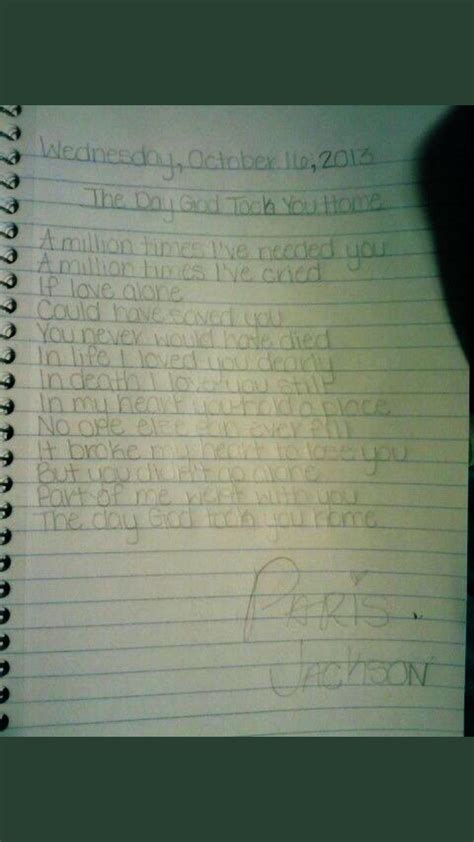 Wednesday, October 16, 2013
The Day God Took You Home
A million times I've needed you
A million times I've cried
If love alone
Could have saved you
You never would have died
In life I loved you dearly
In death I love you still
In my heart you hold a place
No one else can ever fill
It broke my heart to lose you
But you didn't go alone
Part of me went with you
The day God took you home
PARIS
JACKSON